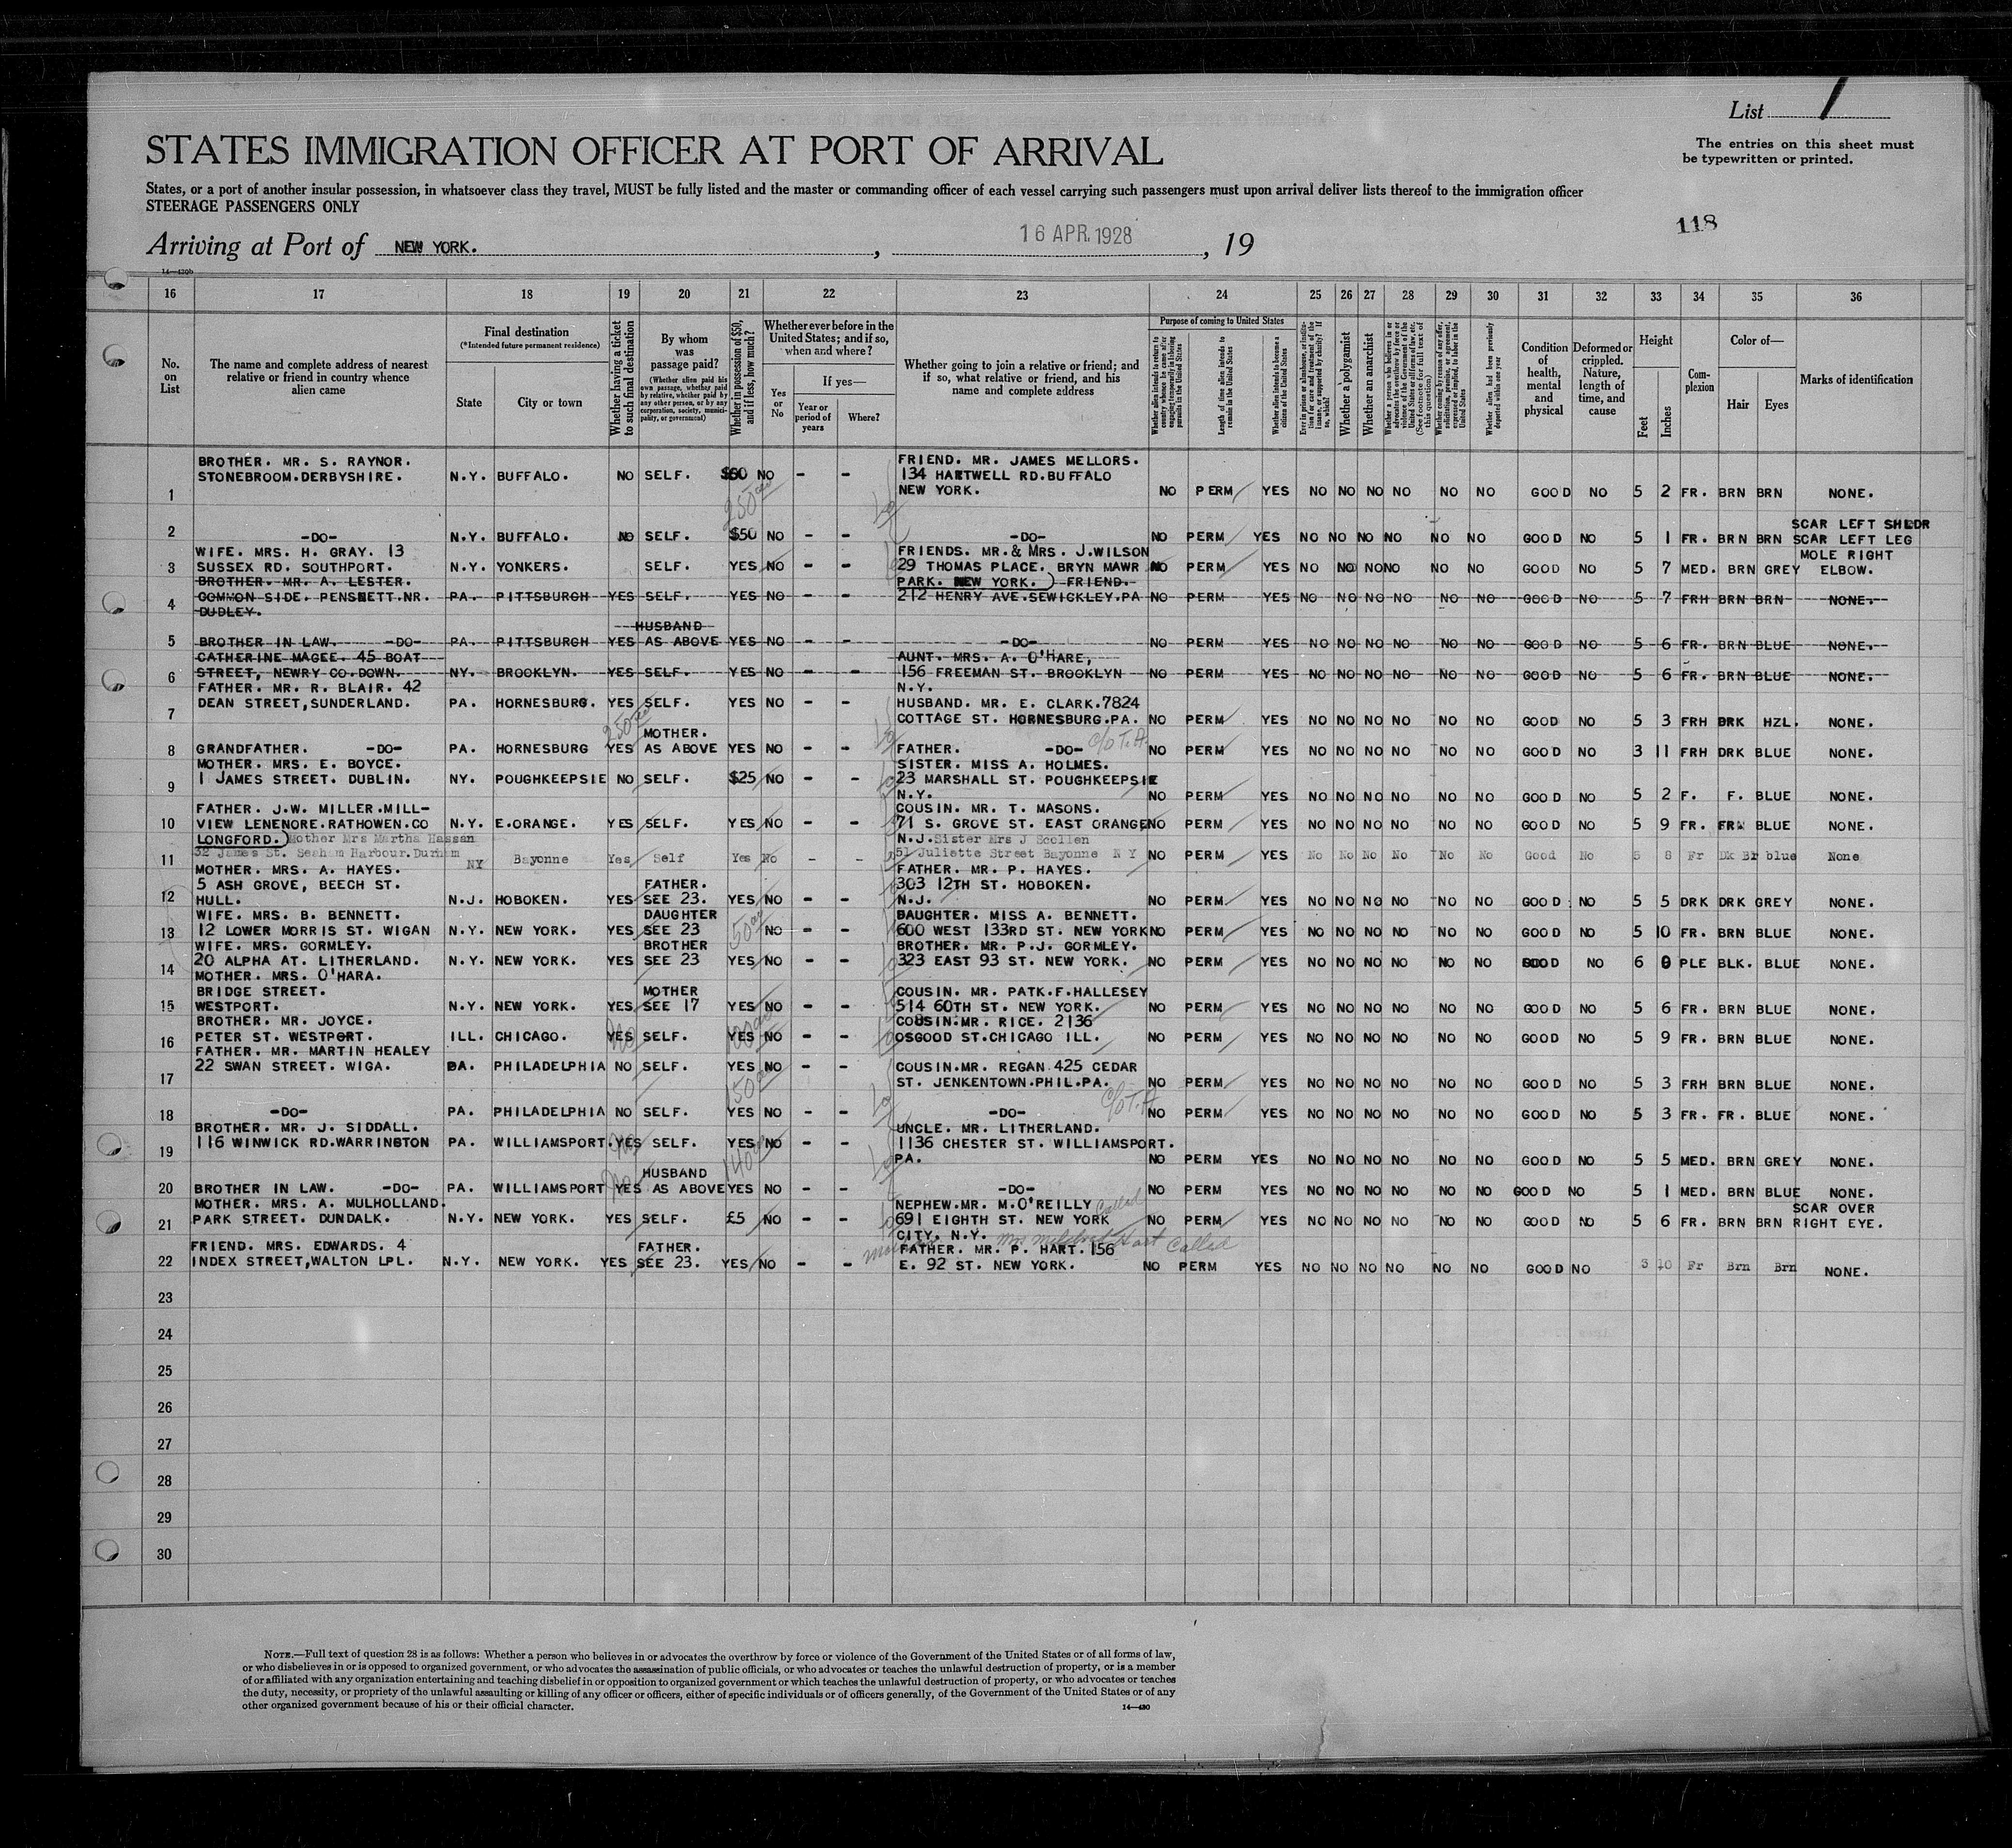 List 1
The entries on this sheet must
be typewritten or printed.
STATES IMMIGRATION OFFICER AT PORT OF ARRIVAL
States, or a port of another insular possession, in whatsoever class they travel, MUST be fully listed and the master or commanding officer of each vessel carrying such passengers must upon arrival deliver lists thereof to the immigration officer
STEERAGE PASSENGERS ONLY
118
Arriving at Port of NEW YORK. , 16 APR. 1928 , 19
16 17 18 19 20 21 22 23 24 25 26 27 28 29 30 31 32 33 34 35 36
No. on List
The name and complete address of nearest relative or friend in country whence alien came
Final destination
(*Intended future permanent residence)
State
City or town
Whether having a ticket to such final destination
By whom was passage paid?
(Whether alien paid his own passage, whether paid by relative, whether paid by any other person, or by any corporation, society, municipality, or government)
Whether in possession of $50, and if less, how much?
Whether ever before in the United States; and if so, when and where?
Yes or No
If yes—
Year or period of years
Where?
Whether going to join a relative or friend; and if so, what relative or friend, and his name and complete address
Purpose of coming to United States
Whether alien intends to return to country whence he came after engaging temporarily in laboring pursuits in the United States
Length of time alien intends to remain in the United States
Whether alien intends to become a citizen of the United States
Ever in prison or almshouse, or institution for care and treatment of the insane, or supported by charity? If so, which?
Whether a polygamist
Whether an anarchist
Whether a person who believes in or advocates the overthrow by force or violence of the Government of the United States or all forms of law, etc. (See footnote for full text of this question)
Whether coming by reason of any offer, solicitation, promise, or agreement, expressed or implied, to labor in the United States
Whether alien had been previously deported within one year
Condition of health, mental and physical
Deformed or crippled. Nature, length of time, and cause
Height
Feet
Inches
Complexion
Color of—
Hair
Eyes
Marks of identification
BROTHER. MR. S. RAYNOR. FRIEND. MR. JAMES MELLORS.
STONEBROOM.DERBYSHIRE. N.Y. BUFFALO. NO SELF. $50 NO - - 134 HARTWELL RD.BUFFALO
1 NEW YORK. NO PERM YES NO NO NO NO NO NO GOOD NO 5 2 FR. BRN BRN NONE.
SCAR LEFT SHLDR
2 -DO- N.Y. BUFFALO. NO SELF. $50 NO - - -DO- NO PERM YES NO NO NO NO NO NO GOOD NO 5 1 FR. BRN BRN SCAR LEFT LEG
WIFE. MRS. H. GRAY. 13 FRIENDS. MR.& MRS. J.WILSON MOLE RIGHT
3 SUSSEX RD. SOUTHPORT. N.Y. YONKERS. SELF. YES NO - - 29 THOMAS PLACE. BRYN MAWR NO PERM YES NO NO NO NO NO NO GOOD NO 5 7 MED. BRN GREY ELBOW.
BROTHER. MR. A. LESTER. PARK. NEW YORK.) FRIEND.
4 COMMON SIDE. PENSNETT.NR. PA. PITTSBURGH YES SELF. YES NO - - 212 HENRY AVE.SEWICKLEY.PA NO PERM YES NO NO NO NO NO NO GOOD NO 5 7 FRH BRN BRN NONE.
DUDLEY.
HUSBAND
5 BROTHER IN LAW. -DO- PA. PITTSBURGH YES AS ABOVE YES NO - - -DO- NO PERM YES NO NO NO NO NO NO GOOD NO 5 6 FR. BRN BLUE NONE.
CATHERINE MAGEE. 45 BOAT AUNT. MRS. A. O'HARE,
6 STREET, NEWRY CO.DOWN. NY. BROOKLYN. YES SELF. YES NO - - 156 FREEMAN ST. BROOKLYN NO PERM YES NO NO NO NO NO NO GOOD NO 5 6 FR. BRN BLUE NONE.
FATHER. MR. R. BLAIR. 42 N.Y.
DEAN STREET,SUNDERLAND. PA. HORNESBURG. YES SELF. YES NO - - HUSBAND. MR. E. CLARK.7824
7 COTTAGE ST. HORNESBURG.PA. NO PERM YES NO NO NO NO NO NO GOOD NO 5 3 FRH DRK HZL. NONE.
MOTHER.
8 GRANDFATHER. -DO- PA. HORNESBURG YES AS ABOVE YES NO - - FATHER. -DO- c/o T.A. NO PERM YES NO NO NO NO NO NO GOOD NO 3 11 FRH DRK BLUE NONE.
MOTHER. MRS. E. BOYCE. SISTER. MISS A. HOLMES.
1 JAMES STREET. DUBLIN. NY. POUGHKEEPSIE NO SELF. $25 NO - - 23 MARSHALL ST. POUGHKEEPSIE
9 N.Y. NO PERM YES NO NO NO NO NO NO GOOD NO 5 2 F. F. BLUE NONE.
FATHER. J.W. MILLER.MILL- COUSIN. MR. T. MASONS.
10 VIEW LENENORE.RATHOWEN.CO N.Y. E.ORANGE. YES SELF. YES NO - - 71 S. GROVE ST. EAST ORANGE NO PERM YES NO NO NO NO NO NO GOOD NO 5 9 FR. FRN BLUE NONE.
LONGFORD.) Mother Mrs Martha Hassan N.J. Sister Mrs J Scollen
11 32 James St. Seaham Harbour.Durham NY Bayonne Yes Self Yes No - - 51 Juliette Street Bayonne N Y NO PERM YES No No No No No No Good No 5 8 Fr Dk Br blue None
MOTHER. MRS. A. HAYES. FATHER. MR. P. HAYES.
5 ASH GROVE, BEECH ST. FATHER. 303 12TH ST. HOBOKEN.
12 HULL. N.J. HOBOKEN. YES SEE 23. YES NO - - N.J. NO PERM YES NO NO NO NO NO NO GOOD NO 5 5 DRK DRK GREY NONE.
WIFE. MRS. B. BENNETT. DAUGHTER DAUGHTER. MISS A. BENNETT.
13 12 LOWER MORRIS ST. WIGAN N.Y. NEW YORK. YES SEE 23 50 NO - - 600 WEST 133RD ST. NEW YORK NO PERM YES NO NO NO NO NO NO GOOD NO 5 10 FR. BRN BLUE NONE.
WIFE. MRS. GORMLEY. BROTHER BROTHER. MR. P.J. GORMLEY.
14 20 ALPHA AT. LITHERLAND. N.Y. NEW YORK. YES SEE 23 YES NO - - 323 EAST 93 ST. NEW YORK. NO PERM YES NO NO NO NO NO NO GOOD NO 6 0 PLE BLK. BLUE NONE.
MOTHER. MRS. O'HARA.
BRIDGE STREET. MOTHER COUSIN. MR. PATK.F.HALLESEY
15 WESTPORT. N.Y. NEW YORK. YES SEE 17 YES NO - - 514 60TH ST. NEW YORK. NO PERM YES NO NO NO NO NO NO GOOD NO 5 6 FR. BRN BLUE NONE.
BROTHER. MR. JOYCE. COUSIN.MR. RICE. 2136
16 PETER ST. WESTPORT. ILL. CHICAGO. YES SELF. YES NO - - OSGOOD ST.CHICAGO ILL. NO PERM YES NO NO NO NO NO NO GOOD NO 5 9 FR. BRN BLUE NONE.
FATHER. MR. MARTIN HEALEY
22 SWAN STREET. WIGA. PA. PHILADELPHIA NO SELF. YES NO - - COUSIN.MR. REGAN 425 CEDAR
17 ST. JENKENTOWN.PHIL.PA. NO PERM YES NO NO NO NO NO NO GOOD NO 5 3 FRH BRN BLUE NONE.
18 -DO- PA. PHILADELPHIA NO SELF. YES NO - - -DO- c/o T.A NO PERM YES NO NO NO NO NO NO GOOD NO 5 3 FR. FR. BLUE NONE.
BROTHER. MR. J. SIDDALL. UNCLE. MR. LITHERLAND.
116 WINWICK RD.WARRINGTON PA. WILLIAMSPORT. YES SELF. YES NO - - 1136 CHESTER ST. WILLIAMSPORT.
19 PA. NO PERM YES NO NO NO NO NO NO GOOD NO 5 5 MED. BRN GREY NONE.
HUSBAND
20 BROTHER IN LAW. -DO- PA. WILLIAMSPORT YES AS ABOVE YES NO - - -DO- NO PERM YES NO NO NO NO NO NO GOOD NO 5 1 MED. BRN BLUE NONE.
MOTHER. MRS. A. MULHOLLAND. NEPHEW.MR. M.O'REILLY Called SCAR OVER
21 PARK STREET. DUNDALK. N.Y. NEW YORK. YES SELF. £5 NO - - 691 EIGHTH ST. NEW YORK NO PERM YES NO NO NO NO NO NO GOOD NO 5 6 FR. BRN BRN RIGHT EYE.
CITY. N.Y. Mrs Mildred Hart Called
FRIEND. MRS. EDWARDS. 4 FATHER. FATHER. MR. P. HART.156
22 INDEX STREET,WALTON LPL. N.Y. NEW YORK. YES SEE 23. YES NO - - E. 92 ST. NEW YORK. NO PERM YES NO NO NO NO NO NO GOOD NO 3 10 Fr Brn Brn NONE.
23
24
25
26
27
28
29
30
NOTE.—Full text of question 28 is as follows: Whether a person who believes in or advocates the overthrow by force or violence of the Government of the United States or of all forms of law,
or who disbelieves in or is opposed to organized government, or who advocates the assassination of public officials, or who advocates or teaches the unlawful destruction of property, or is a member
of or affiliated with any organization entertaining and teaching disbelief in or opposition to organized government or which teaches the unlawful destruction of property, or who advocates or teaches
the duty, necessity, or propriety of the unlawful assaulting or killing of any officer or officers, either of specific individuals or of officers generally, of the Government of the United States or of any
other organized government because of his or their official character. 14—430